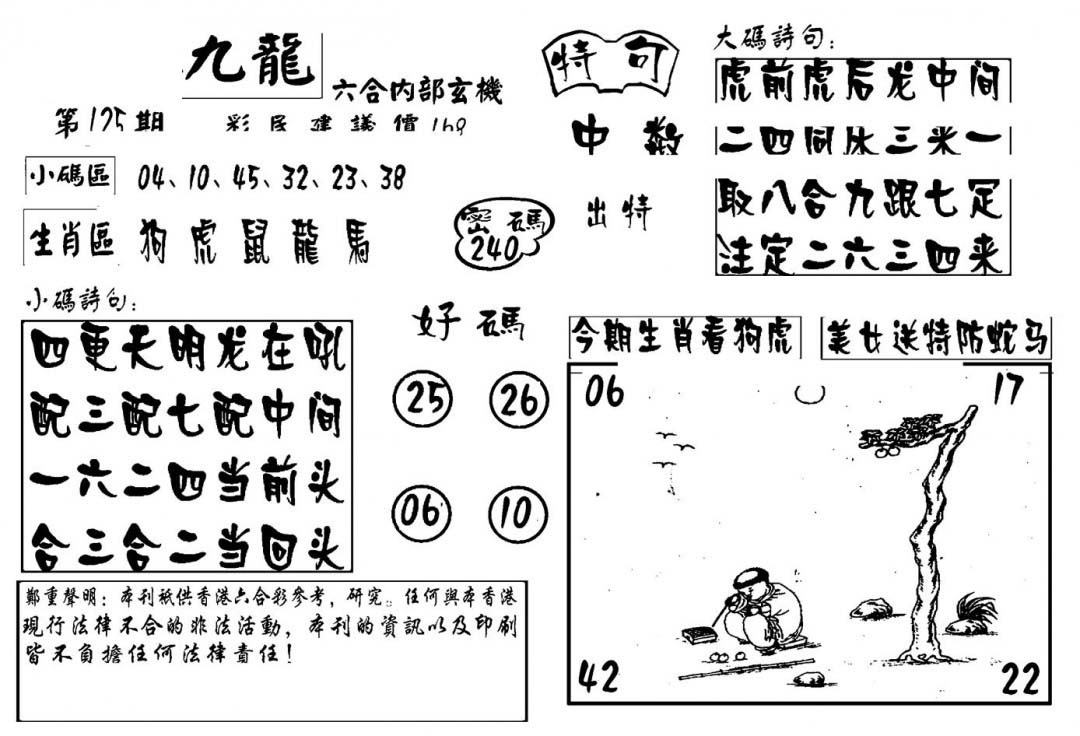 九龍
六合内部玄機
第125期
彩民建議價160
小碼區
04、10、45、32、23、38
生肖區
狗 虎 鼠 龍 馬
密碼
240
特句
中数
出特
大碼詩句:
虎前虎后龙中间
二四同休三来一
取八合九跟七定
注定二六三四来
小碼詩句:
四更天明龙在吼
配三配七配中间
一六二四当前头
合三合二当回头
好碼
25
26
06
10
今期生肖看狗虎
美女送特防蛇马
06
17
42
22
鄭重聲明:本刊祇供香港六合彩參考,研究。任何與本香港
現行法律不合的非法活動,本刊的資訊以及印刷
皆不負擔任何法律責任!